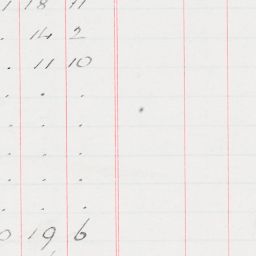 1 18 11
. 14 2
. 11 10
. . .
. . .
. . .
. . .
0 19 6